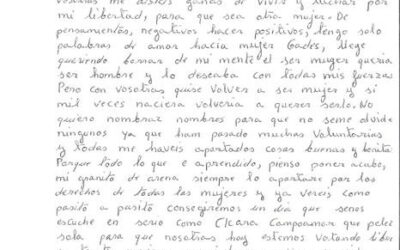 vosotras me disteis ganas de vivir y luchar por
mi libertad, para que sea otra mujer. De
pensamentos, negativos hacer positivos, tengo solo
palabdras de amor hacia mujer Gades, llege
queriendo borrar de mi mente el ser mujer queria
ser hombre y lo deseaba con todas mis fuerzas
Pero con vosotras quise volver a ser mujer y si
mil veces naciera volveria a querer serlo. No
quiero nombraz nombres para que no seme olvide
ningunos ya que ham pasado muchas voluntarias
y todas me haveis apartados cosas buenas y bonita
Porque todo lo que e aprendido, pienso poner acabo,
mi granito de arena siempre lo aportare por los
derechos de todas las mujeres y ya vereis como
pasitó a pasitó conseguiremos un dia que senos
escuche en serio como Clcara Campoamor que peleó
sola para que nosotras hoy estemos votando liber